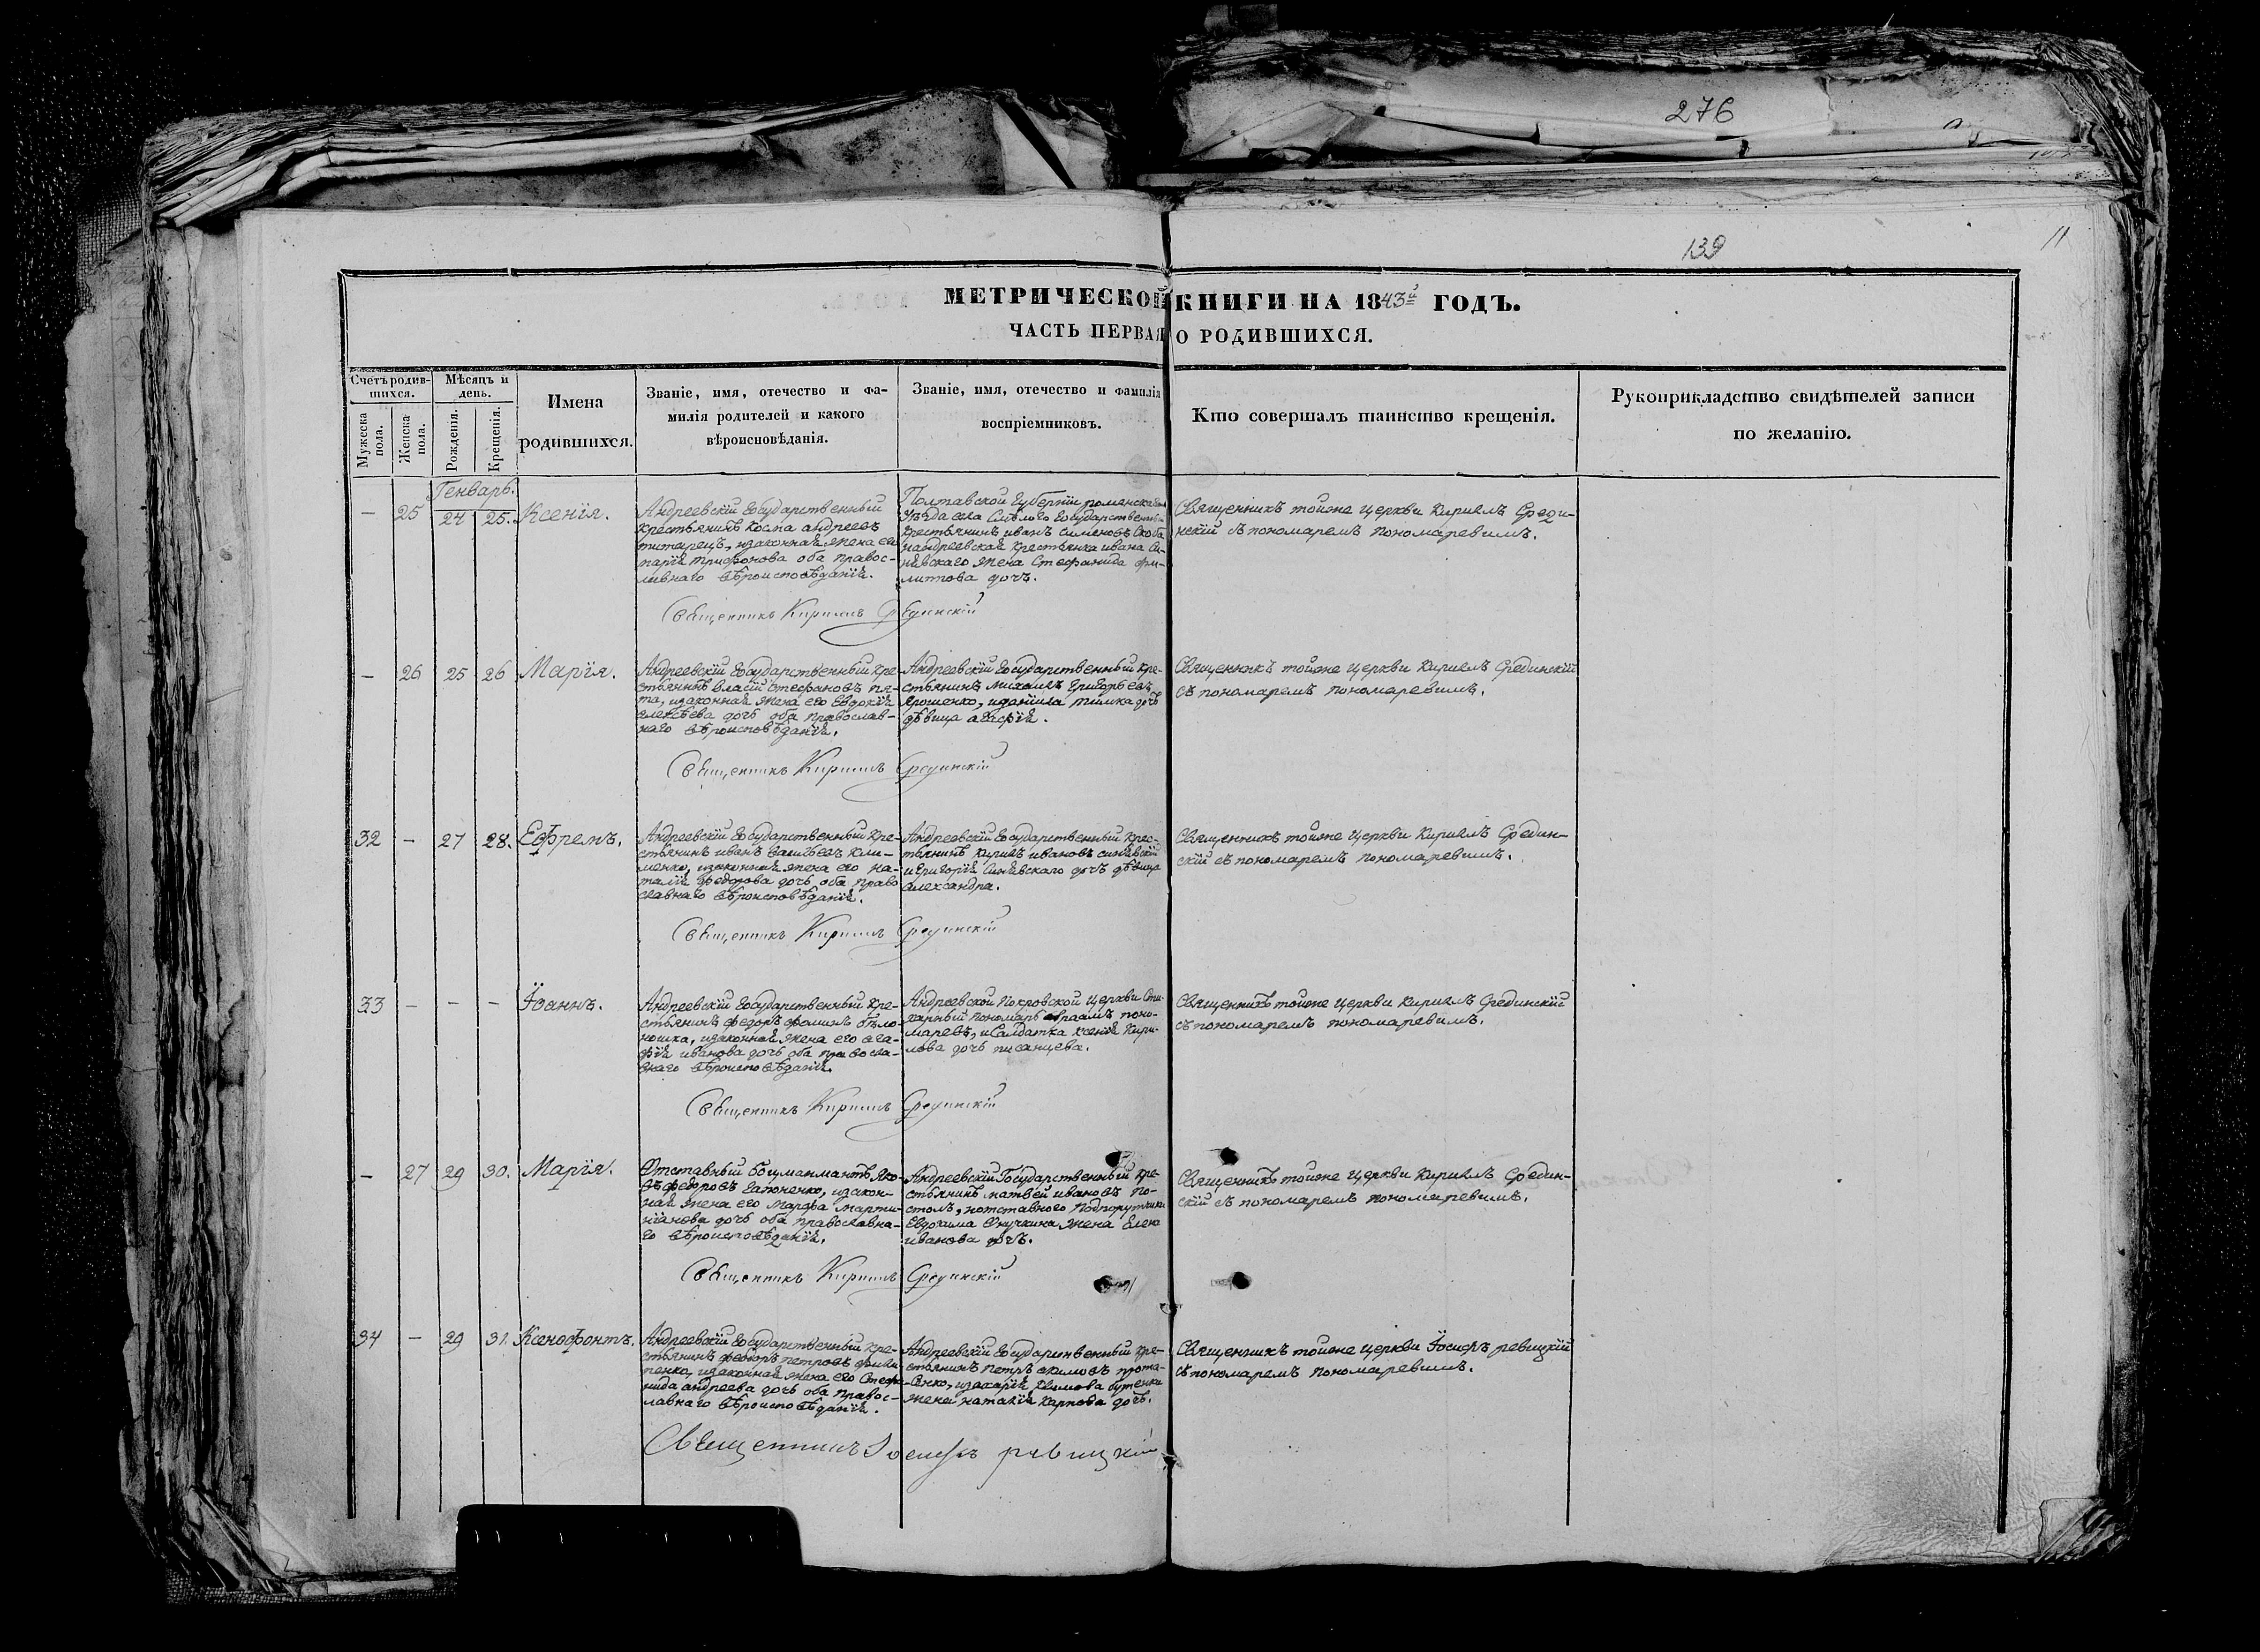 276
139
11
МЕТРИЧЕСКОЙ КНИГИ НА 1843й ГОДЪ.
ЧАСТЬ ПЕРВАЯ О РОДИВШИХСЯ.
Счетъ родив-
шихся.
Мужеска пола.
Женска пола.
Мѣсяцъ и
день.
Рожденія.
Крещенія.
Имена
родившихся.
Званіе, имя, отечество и фа-
милія родителей и какого
вѣроисповѣданія.
Званіе, имя, отечество и фамилія
воспріемниковъ.
Кто совершалъ таинство крещенія.
Рукоприкладство свидѣтелей записи
по желанію.
Генварь.
— 25 24 25. Ксенія.
Андреевскій Государственный
крестьянинъ Косма андреевъ
изаконная жена его
марія трифонова оба правос-
лавнаго вѣроисповѣданія.
Полтавской губерніи роменскаго
уѣзда села Смѣлого Государственный
крестьянинъ иванъ Скоба
иандреевская крестьянка ивана Си-
нѣвскаго жена Стефанида фи-
липова дочь.
Священникъ тойже церкви Кириллъ Среди-
нскій съ пономаремъ пономаревимъ.
Священникъ Кириллъ Срединскій
— 26 25 26 Марія.
Андреевскій Государственный кре-
стьянинъ власій стефановъ пя-
та, изаконная жена его Евдокія
алексѣева дочь оба православ-
наго вѣроисповѣданія.
Андреевскій Государственный кре-
стьянинъ михаилъ григорьевъ
Ярошенко, иданіила тимка дочь
дѣвица агафія.
Священникъ тойже церкви Кириллъ Срединскій
съ пономаремъ пономаревимъ.
Священникъ Кириллъ Срединскій
32 — 27 28. Ефремъ.
Андреевскій Государственный кре-
стьянинъ иванъ васильевъ кли-
менко, изаконная жена его на-
талія федорова дочь оба право
славнаго вѣроисповѣданія.
Андреевскій Государственный крес-
тьянинъ кирилъ ивановъ синѣвскій
игригорія Синѣвскаго дочь дѣвица
александра.
Священникъ тойже церкви Кириллъ Средин-
скій съ пономаремъ пономаревимъ.
Священникъ Кириллъ Срединскій
33 — — — Іоаннъ.
Андреевскій Государственный кре-
стьянинъ федоръ фоминъ бѣло-
ношка, изаконная жена его ага-
фія иванова дочь оба правосла-
внаго вѣроисповѣданія.
Андреевской Покровской церкви Сти-
харный пономарь авраамъ поно-
маревъ, иСалдатка ксенія Кири-
лова дочь писанцева.
Священникъ тойже церкви Кириллъ Срединскій
съ пономаремъ пономаревимъ.
Священникъ Кириллъ Срединскій
— 27 29 30. Марія.
Отставный боцманматъ яко-
въ федоровъ изакон-
ная жена его Марфа марти-
ніанова дочь оба православна-
го вѣроисповѣданія.
Андреевскій Государственный кре-
стьянинъ матвей ивановъ по-
столъ, иотставного Подпорутчика
Евдокима Онучкина жена Елена
иванова дочь.
Священникъ тойже церкви Кириллъ Средин-
скій съ пономаремъ пономаревимъ.
Священникъ Кириллъ Срединскій
34 — 29 31. Ксенофонтъ.
Андреевскій Государственный кре-
стьянинъ федоръ петровъ
изаконная жена его Стефа-
нида андреева дочь оба правос-
лавнаго вѣроисповѣданія.
Андреевскій Государственный кре-
стьянинъ петръ екимовъ прота-
сенко, изахарія екимова бутенка
жена наталія карпова дочь.
Священникъ тойже церкви Іосифъ ревицкій
съ пономаремъ пономаревимъ.
Священникъ Іосифъ ревицкій